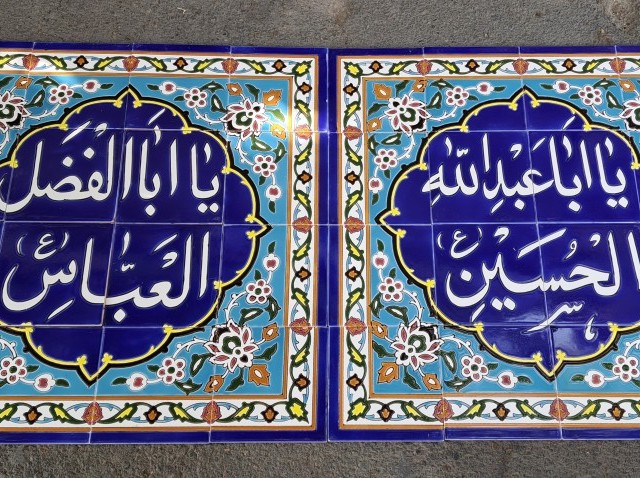 یا اباعبدالله
الحسین (ع)
یا ابا الفضل
العباس (ع)